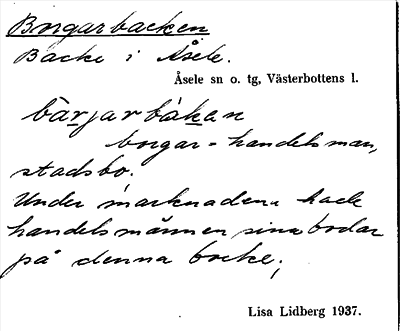 Borgarbacken
Backe i Åsele.
Åsele sn o. tg, Västerbottens l.
bàrjarbákan
borgar = handelsman,
stadsbo.
Under marknaden hade
handelsmännen sina bodar
på denna backe.
Lisa Lidberg 1937.